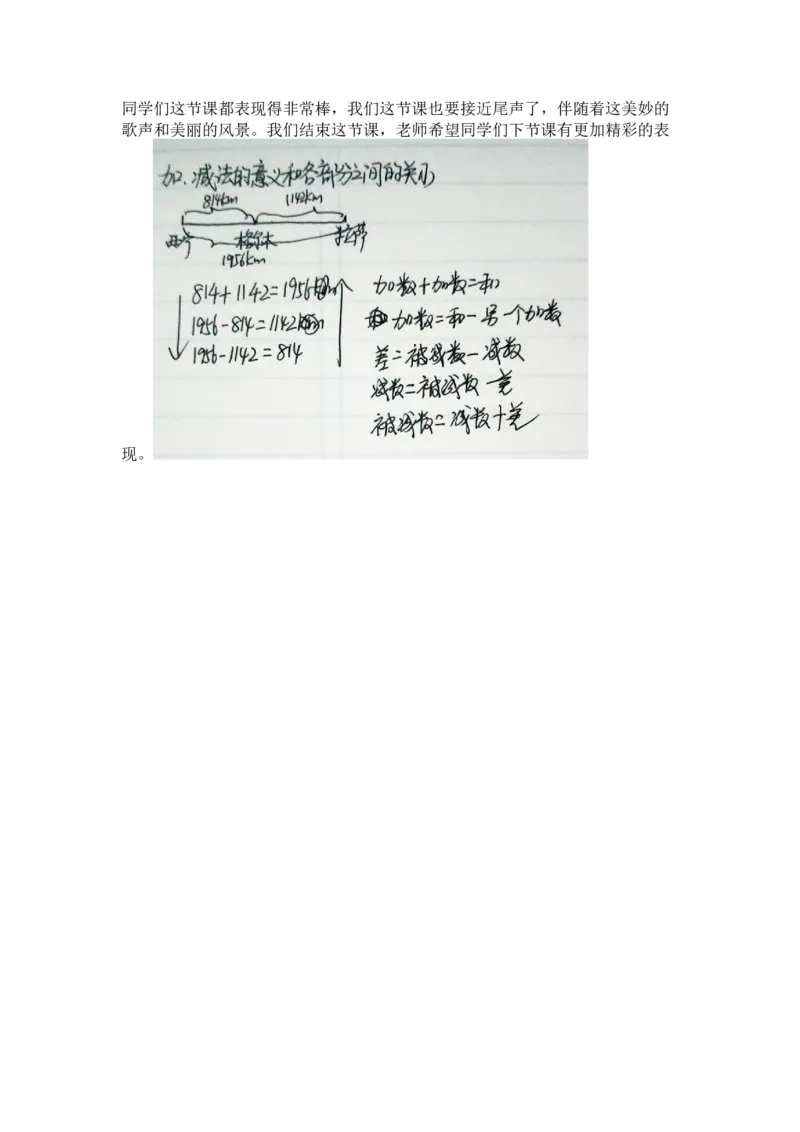 同学们这节课都表现得非常棒，我们这节课也要接近尾声了，伴随着这美妙的
歌声和美丽的风景。我们结束这节课，老师希望同学们下节课有更加精彩的表
加、减法的意义和各部分之间的关系
814km 1142km
西宁 格尔木 拉萨
1956km
814+1142=1956
1956-814=1142
1956-1142=814
加数+加数=和
加数=和-另一个加数
差=被减数-减数
减数=被减数-差
被减数=减数+差
现。